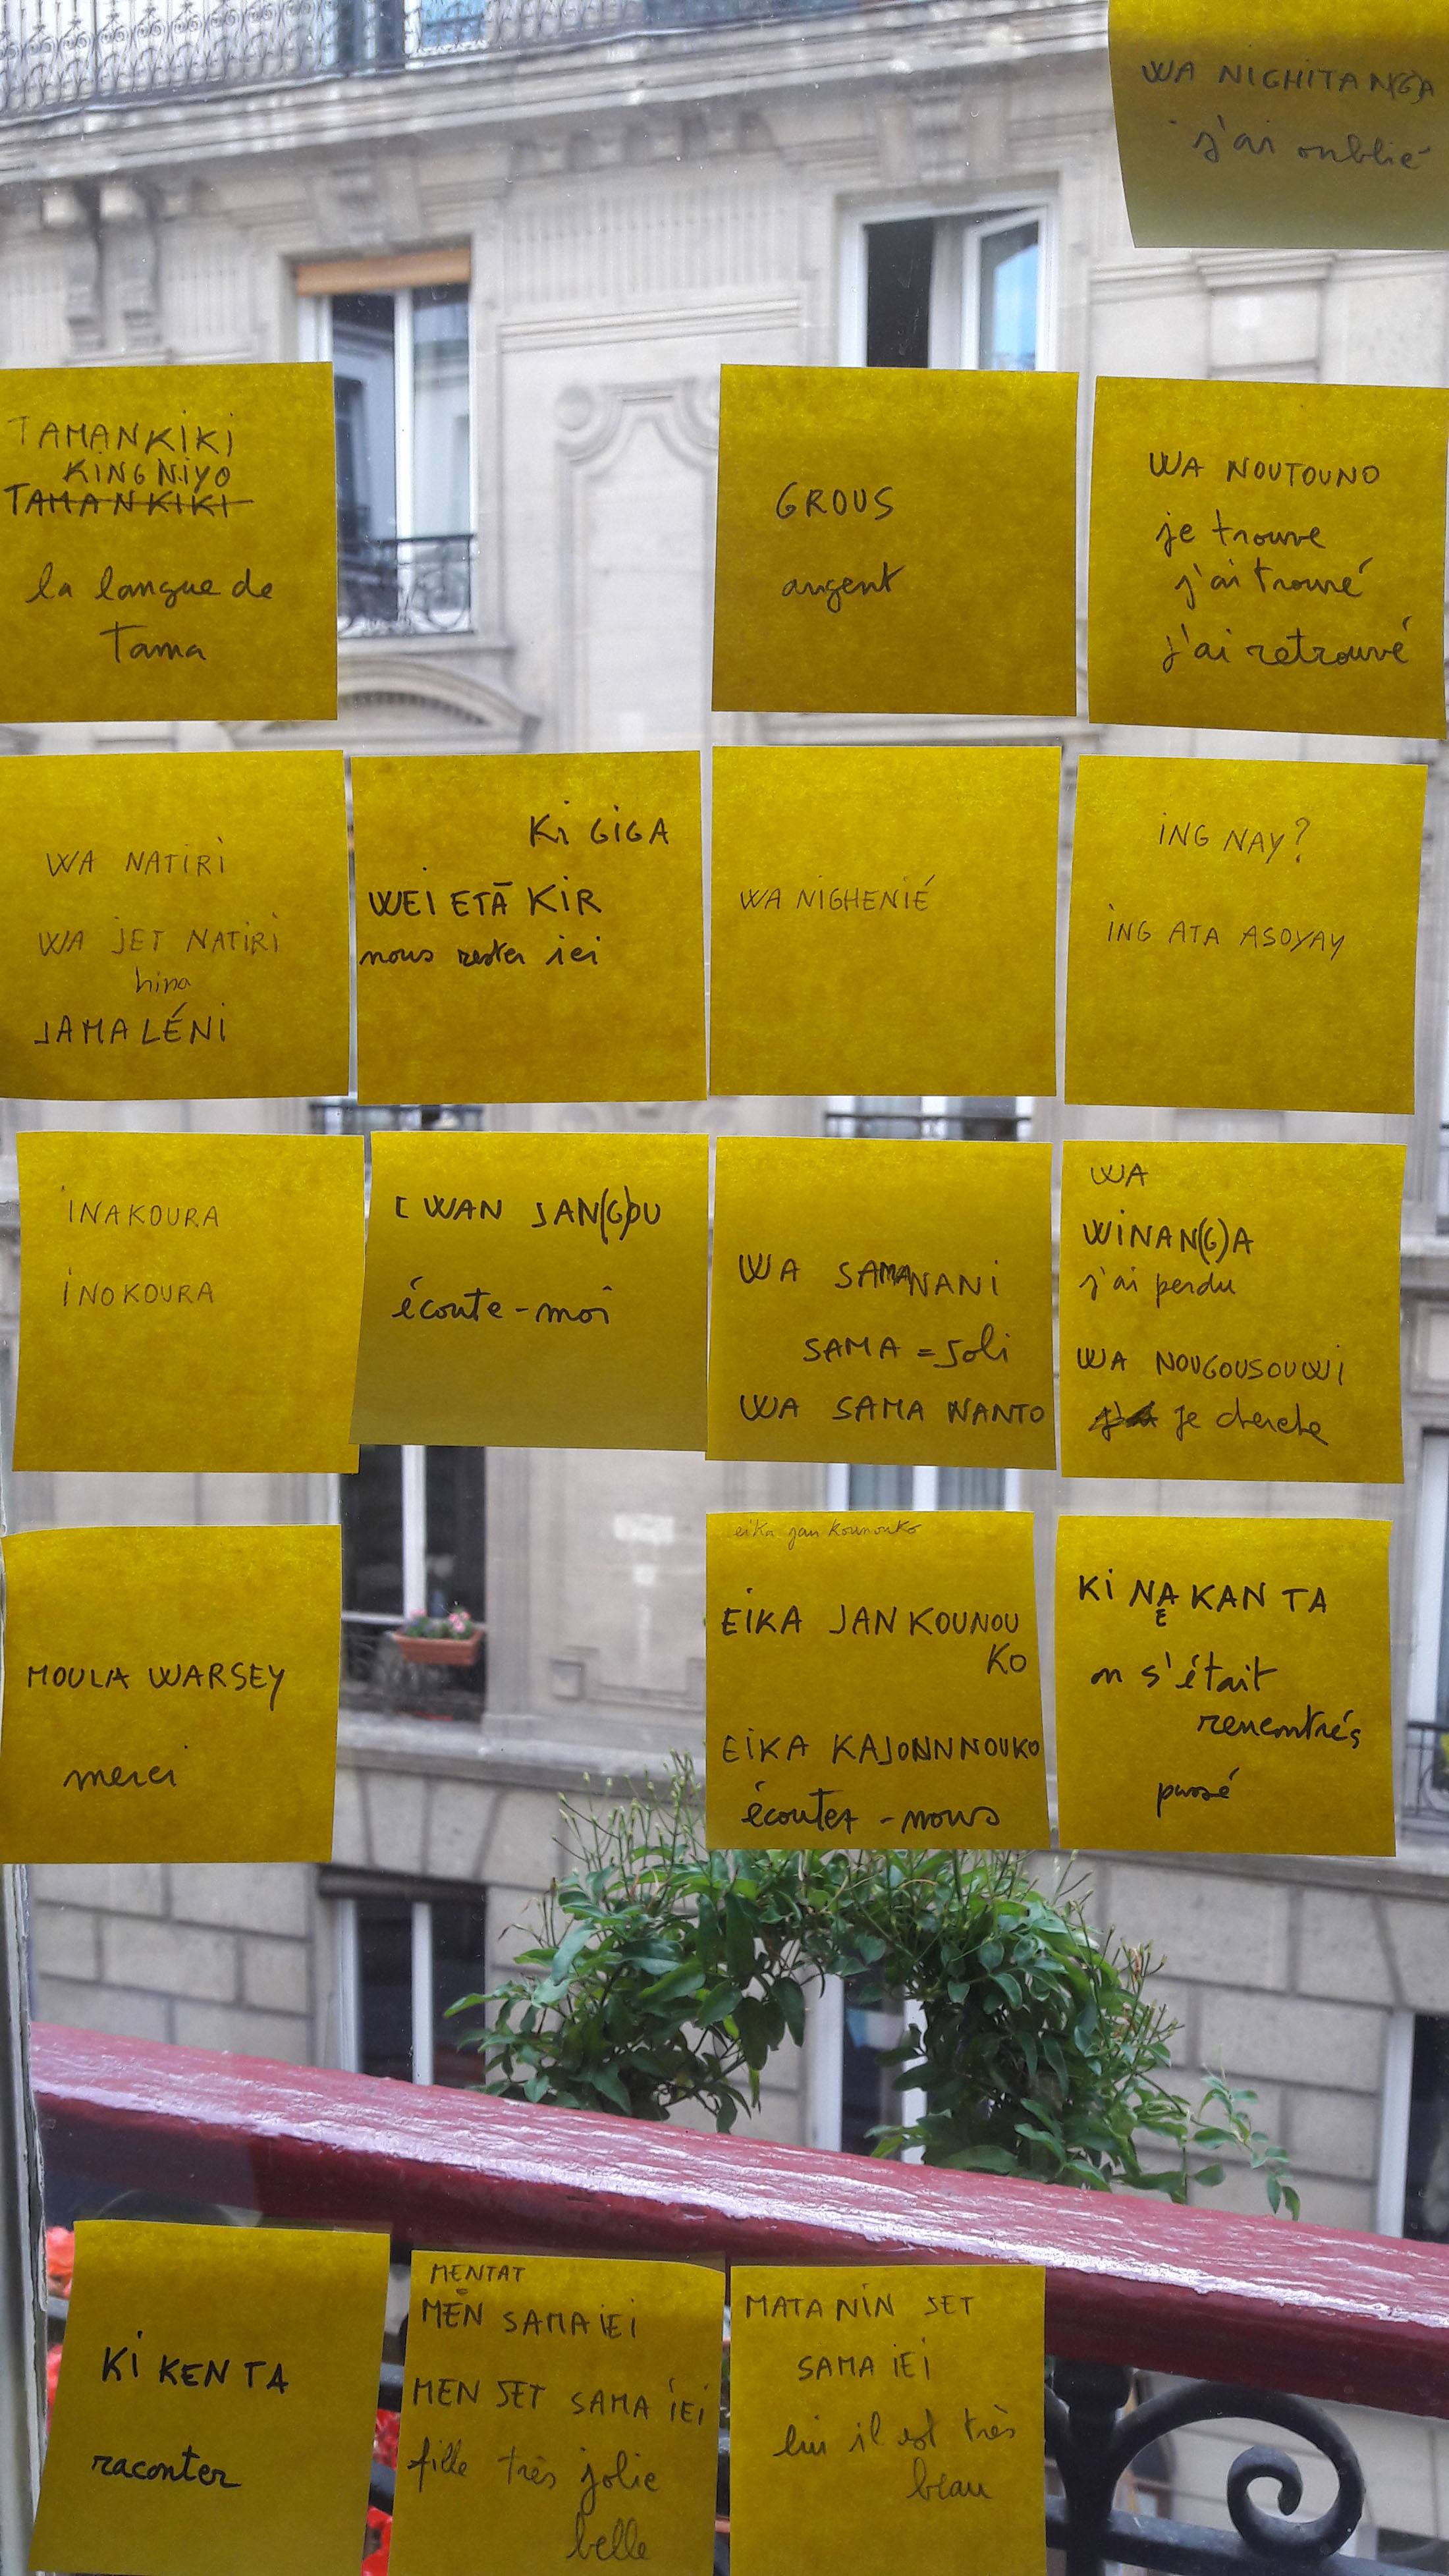 WA NIGHITAN(G)A
j'ai oublié
TAMANKIKI
KINGNIYO
TAMANKIKI
la langue de
Tama
GROUS
argent
WA NOUTOUNO
je trouve
j'ai trouvé
j'ai retrouvé
WA NATIRI
WA JET NATIRI
hina
JAMALÉNI
Ki GIGA
WEI ETĀ KIR
nous rester ici
WA NIGHENIÉ
ING NAY?
ING ATA ASOYAY
INAKOURA
INOKOURA
WAN JAN(G)OU
écoute-moi
WA SAMANANI
SAMA = Joli
WA SAMA NANTO
WA
WINAN(G)A
j'ai perdu
WA NOUGOUSOUWI
je cherche
MOULA WARSEY
merci
eika jan kounouko
EIKA JAN KOUNOU
KO
EIKA KAJONNNOUKO
écoutez-nous
KI NAKAN TA
E
on s'était
rencontrés
passé
KI KEN TA
raconter
MENTAT
MEN SAMA IEI
MEN JET SAMA IEI
fille très jolie
belle
MATANIN JET
SAMA IEI
lui il est très
beau